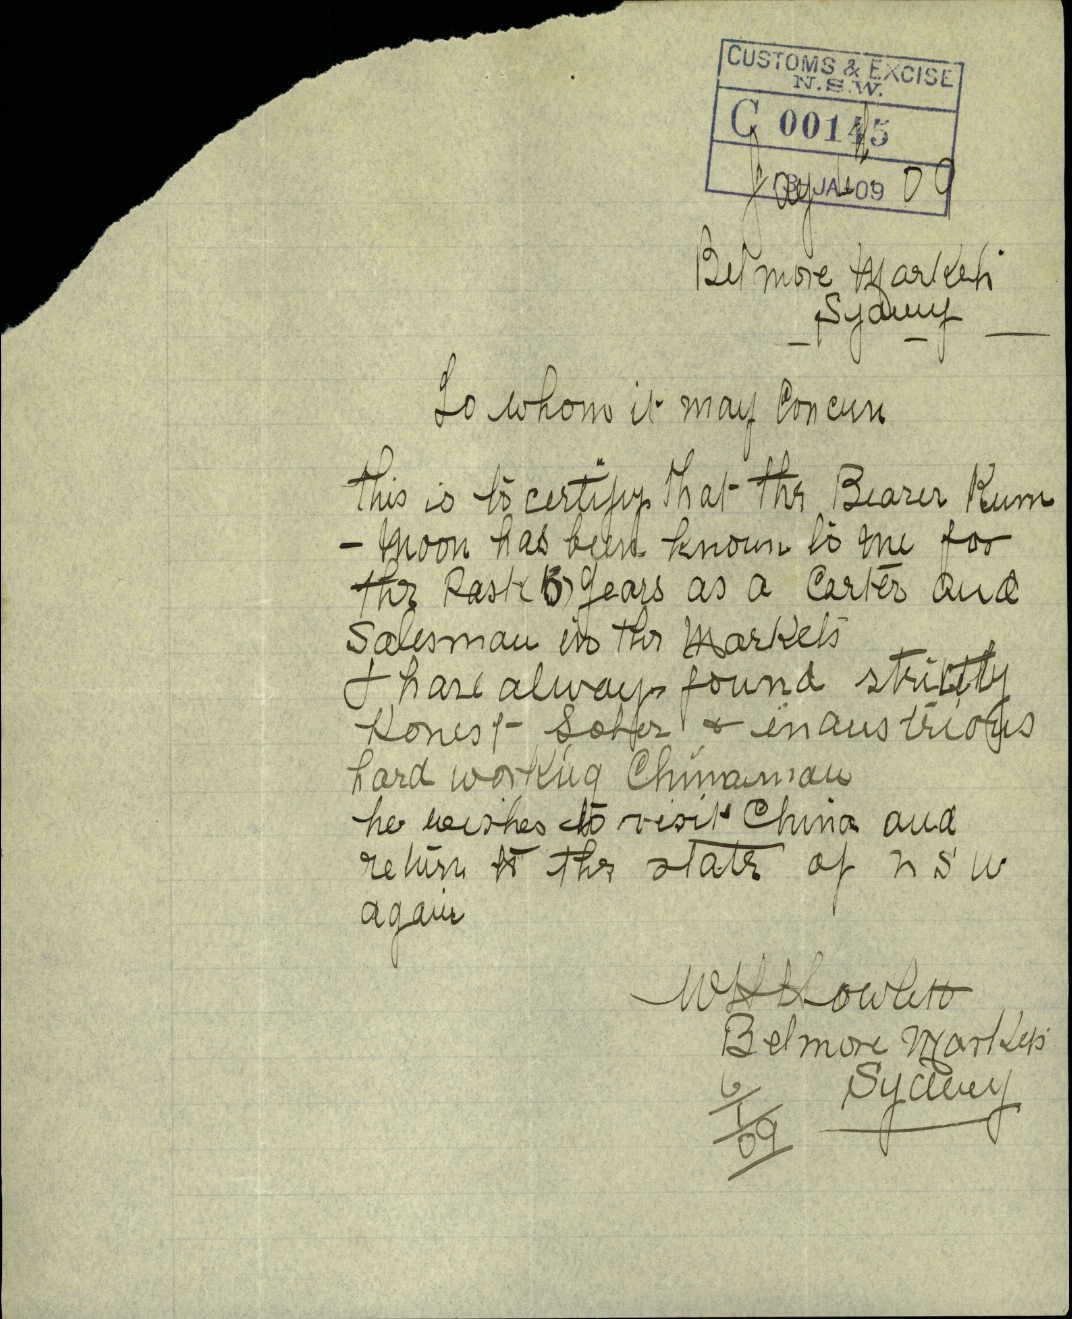 CUSTOMS & EXCISE
N.S.W.
C 00145
8 JA 09
Jay 4. 09
Belmore Markets
Sydney
To whom it may Concern
this is to certify that the Bearer Kum
- Moon has been known to me for
the Past (5) Years as a Carter and
Salesman in the Markets
I have always found strictly
Honest Sober & industrious
hard working Chinaman
he wishes to visit China and
return to the state of N S W
again
W H Howlett
Belmore Markets
Sydney
6/1/09